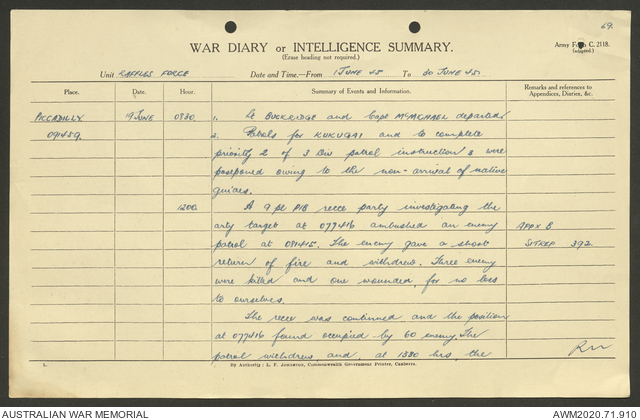 69.
WAR DIARY or INTELLIGENCE SUMMARY.
(Erase heading not required.)
Army Form C. 2118.
(adapted.)
Unit RAFFLES FORCE Date and Time—From 1 JUNE 45 To 30 JUNE 45.
Place. Date. Hour. Summary of Events and Information. Remarks and references to Appendices, Diaries, &c.
PICCADILLY 19 JUNE 0830. 1. Lt BUCKRIDGE and Capt McMICHAEL departed.
091459. 2. Patrols for KUKUGAI and to complete
priority 2 of 3 Div patrol instruction 3 were
postponed owing to the non-arrival of native
guides.
1200. A 9 pl PIB recce party investigating the
arty target at 077416 ambushed an enemy APPX B
patrol at 081415. The enemy gave a short SITREP 392.
return of fire and withdrew. Three enemy
were killed and one wounded, for no loss
to ourselves.
The recce was continued and the position
at 077416 found occupied by 60 enemy. The
patrol withdrew and, at 1330 hrs, the
L. By Authority: L. F. Johnston, Commonwealth Government Printer, Canberra.
AUSTRALIAN WAR MEMORIAL AWM2020.71.910